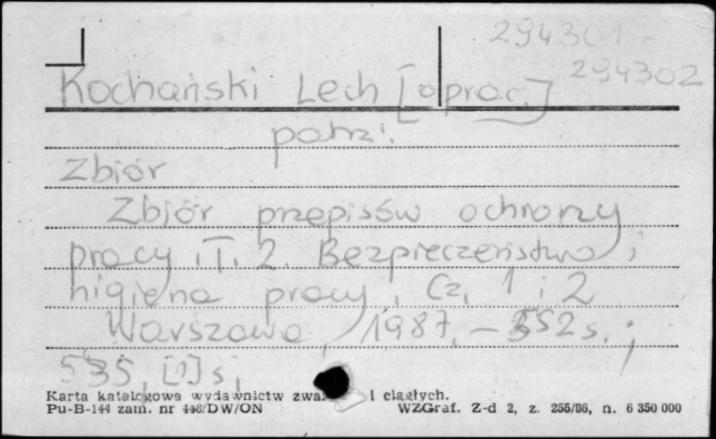 294301
294302
Kochański Lech [oprac.]
patrz:
Zbiór
Zbiór przepisów ochrony
pracy. T. 2. Bezpieczeństwo i
higiena pracy. Cz. 1 i 2
Warszawa, 1987. – 552 s. ;
535, [1] s.
Karta katalogowa wydawnictw i ciągłych.
Pu-B-144 zam. nr /DW/ON WZGraf. Z-d 2, z. 255/86, n. 6 350 000